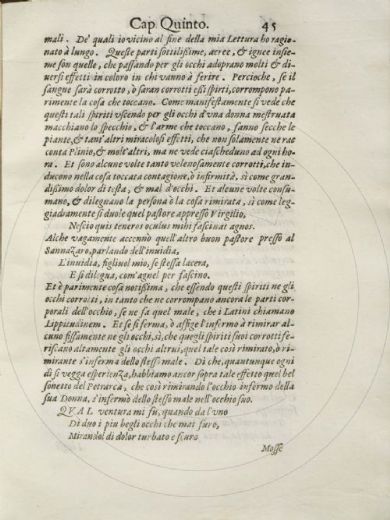 Cap Quinto. 45
mali. De' quali io vicino al fine della mia Lettura ho ragio-
nato à lungo. Queste parti sottilißime, aeree, & ignee insie-
me son quelle, che passando per gli occhi adoprano molti & di-
uersi effetti in coloro in chi vanno à ferire. Percioche, se il
sangue sarà corrotto, ò saran corrotti eßi spiriti, corrompono pa-
rimente la cosa che toccano. Come manifestamente si vede che
questi tali spiriti vscendo per gli occhi d'vna donna mestruata
macchiano lo specchio, & l'arme che toccano, fanno secche le
piante, & tant'altri miracolosi effetti, che non solamente ne rac
conta Plinio, & molt'altri, ma ne vede ciascheduno ad ogni ho-
ra. Et sono alcune volte tanto velenosamente corrotti, che in-
ducono nella cosa toccata contagione, ò infirmità, sì come gran-
dißimo dolor di testa, & mal d'occhi. Et alcune volte consu-
mano, & dileguano la persona ò la cosa rimirata, sì come leg-
giadramente si duole quel pastore appresso Virgilio,
Nescio quis teneros oculus mihi fascinat agnos.
Alche vagamente accennò quell'altro buon pastore presso al
Sannazaro, parlando dell'inuidia,
L'inuidia, figliuol mio, se stessa lacera,
E si dilegua, com'agnel per fascino.
Et è parimente cosa notißima, che essendo questi spiriti ne gli
occhi corrotti, in tanto che ne corrompano ancora le parti cor-
porali dell'occhio, se ne fa quel male, che i Latini chiamano
Lippitudinem. Et se si ferma, ò affige l'infermo à rimirar al-
cuno fissamente ne gli occhi, sì, che quegli spiriti suoi corrotti fe-
riscano altamente gli occhi altrui, quel tale così rimirato, ò ri-
mirante s'inferma dello stesso male. Di che, quantunque ogni
dì si vegga esperienza, habbiamo ancor sopra tale effetto quel bel
sonetto del Petrarca, che così rimirando l'occhio infermo della
sua Donna, s'infermò dello stesso male nell'occhio suo.
QVAL ventura mi fù, quando da l'vno
Di duo i piu begli occhi che mai furo,
Mirandol di dolor turbato e scuro
Mosse